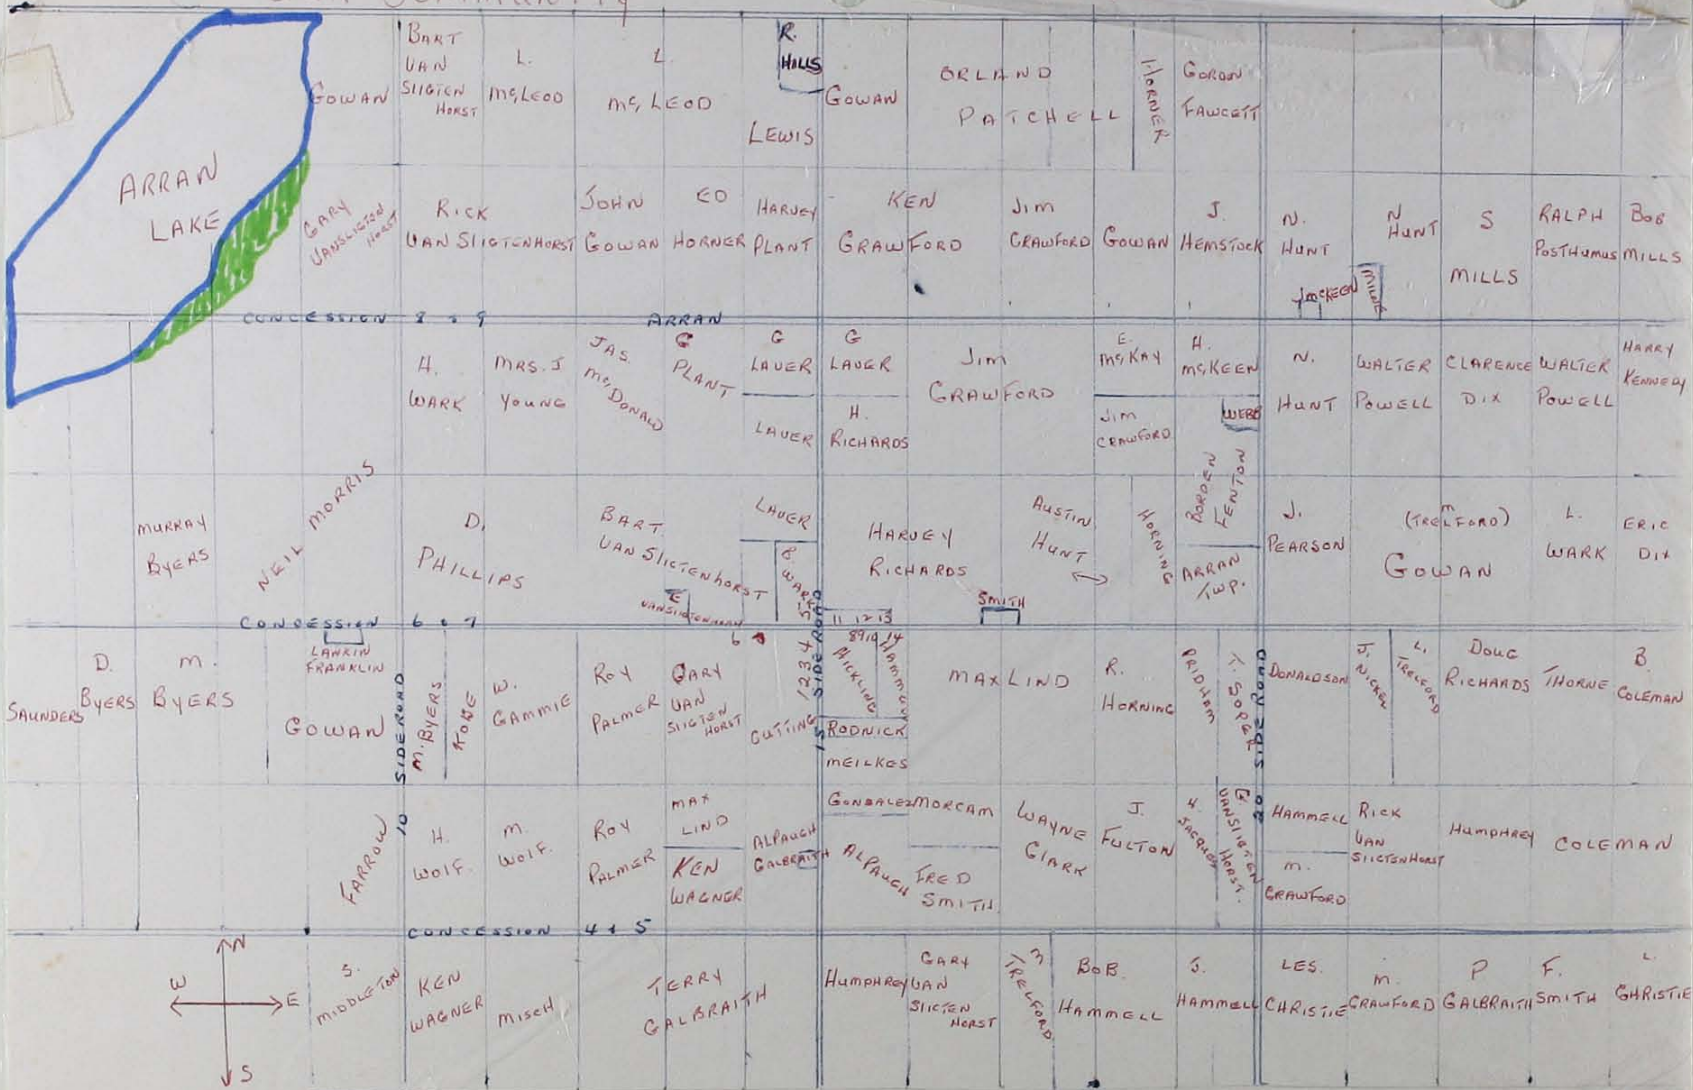 ARRAN
LAKE
GOWAN
BART
VAN
SLIGTEN
HORST
L.
McLEOD
L.
McLEOD
R.
HILLS
LEWIS
GOWAN
ORLAND
PATCHELL
HORNER
GORDON
FAWCETT
GARY
VANSLIGTEN
HORST
RICK
VAN SLIGTENHORST
JOHN
GOWAN
ED
HORNER
HARVEY
PLANT
KEN
CRAWFORD
JIM
CRAWFORD
GOWAN
J.
HEMSTOCK
N.
HUNT
J McKEEN
MILNE
N
HUNT
S
MILLS
RALPH
POSTHUMUS
BOB
MILLS
CONCESSION 8 & 9 ARRAN
H.
WARK
MRS. J
YOUNG
JAS.
McDONALD
G
PLANT
G
LAUER
LAUER
G
LAUER
H.
RICHARDS
JIM
CRAWFORD
E.
McKAY
JIM
CRAWFORD
H.
McKEEN
WEBB
N.
HUNT
WALTER
POWELL
CLARENCE
DIX
WALTER
POWELL
HARRY
KENNEDY
MURRAY
BYERS
NEIL MORRIS
D.
PHILLIPS
BART.
VAN SLIGTENHORST
E
VANSLIGTENHORST
LAUER
B. WARK
HARVEY
RICHARDS
SMITH
AUSTIN
HUNT
HORNING
BORDEN
FENTON
ARRAN
TWP.
J.
PEARSON
M
(TRELFORD)
GOWAN
L.
WARK
ERIC
DIX
CONCESSION 6 & 7
11 12 13
6
1 2 3 4 5
8 9 10 14
SAUNDERS
D.
BYERS
M.
BYERS
LANKIN
FRANKLIN
GOWAN
10 SIDEROAD
M. BYERS
ROBE
W.
GAMMIE
ROY
PALMER
GARY
VAN
SLIGTEN
HORST
CUTTING
15 SIDE ROAD
HICKLING
HAMMELL
RODNICK
MEILKES
MAX LIND
R.
HORNING
PRIDHAM
T. SOPER
20 SIDE ROAD
DONALDSON
J.
NICKEN
L.
TRELFORD
DOUG
RICHARDS
THORNE
B.
COLEMAN
FARROW
H.
WOLF.
M.
WOLF.
ROY
PALMER
MAX
LIND
KEN
WAGNER
ALPAUGH
GALBRAITH
GONSALEZ
ALPAUGH
MORCAM
FRED
SMITH
WAYNE
CLARK
J.
FULTON
H.
JACQUES
VANSLIGTEN
HORST.
HAMMELL
M.
CRAWFORD
RICK
VAN
SLIGTENHORST
HUMPHREY
COLEMAN
CONCESSION 4 & 5
N
W
E
S
S.
MIDDLETON
KEN
WAGNER
MISCH
TERRY
GALBRAITH
HUMPHREY
GARY
VAN
SLIGTEN
HORST
M
TRELFORD
BOB.
HAMMELL
J.
HAMMELL
LES.
CHRISTIE
M.
CRAWFORD
P
GALBRAITH
F.
SMITH
L.
CHRISTIE